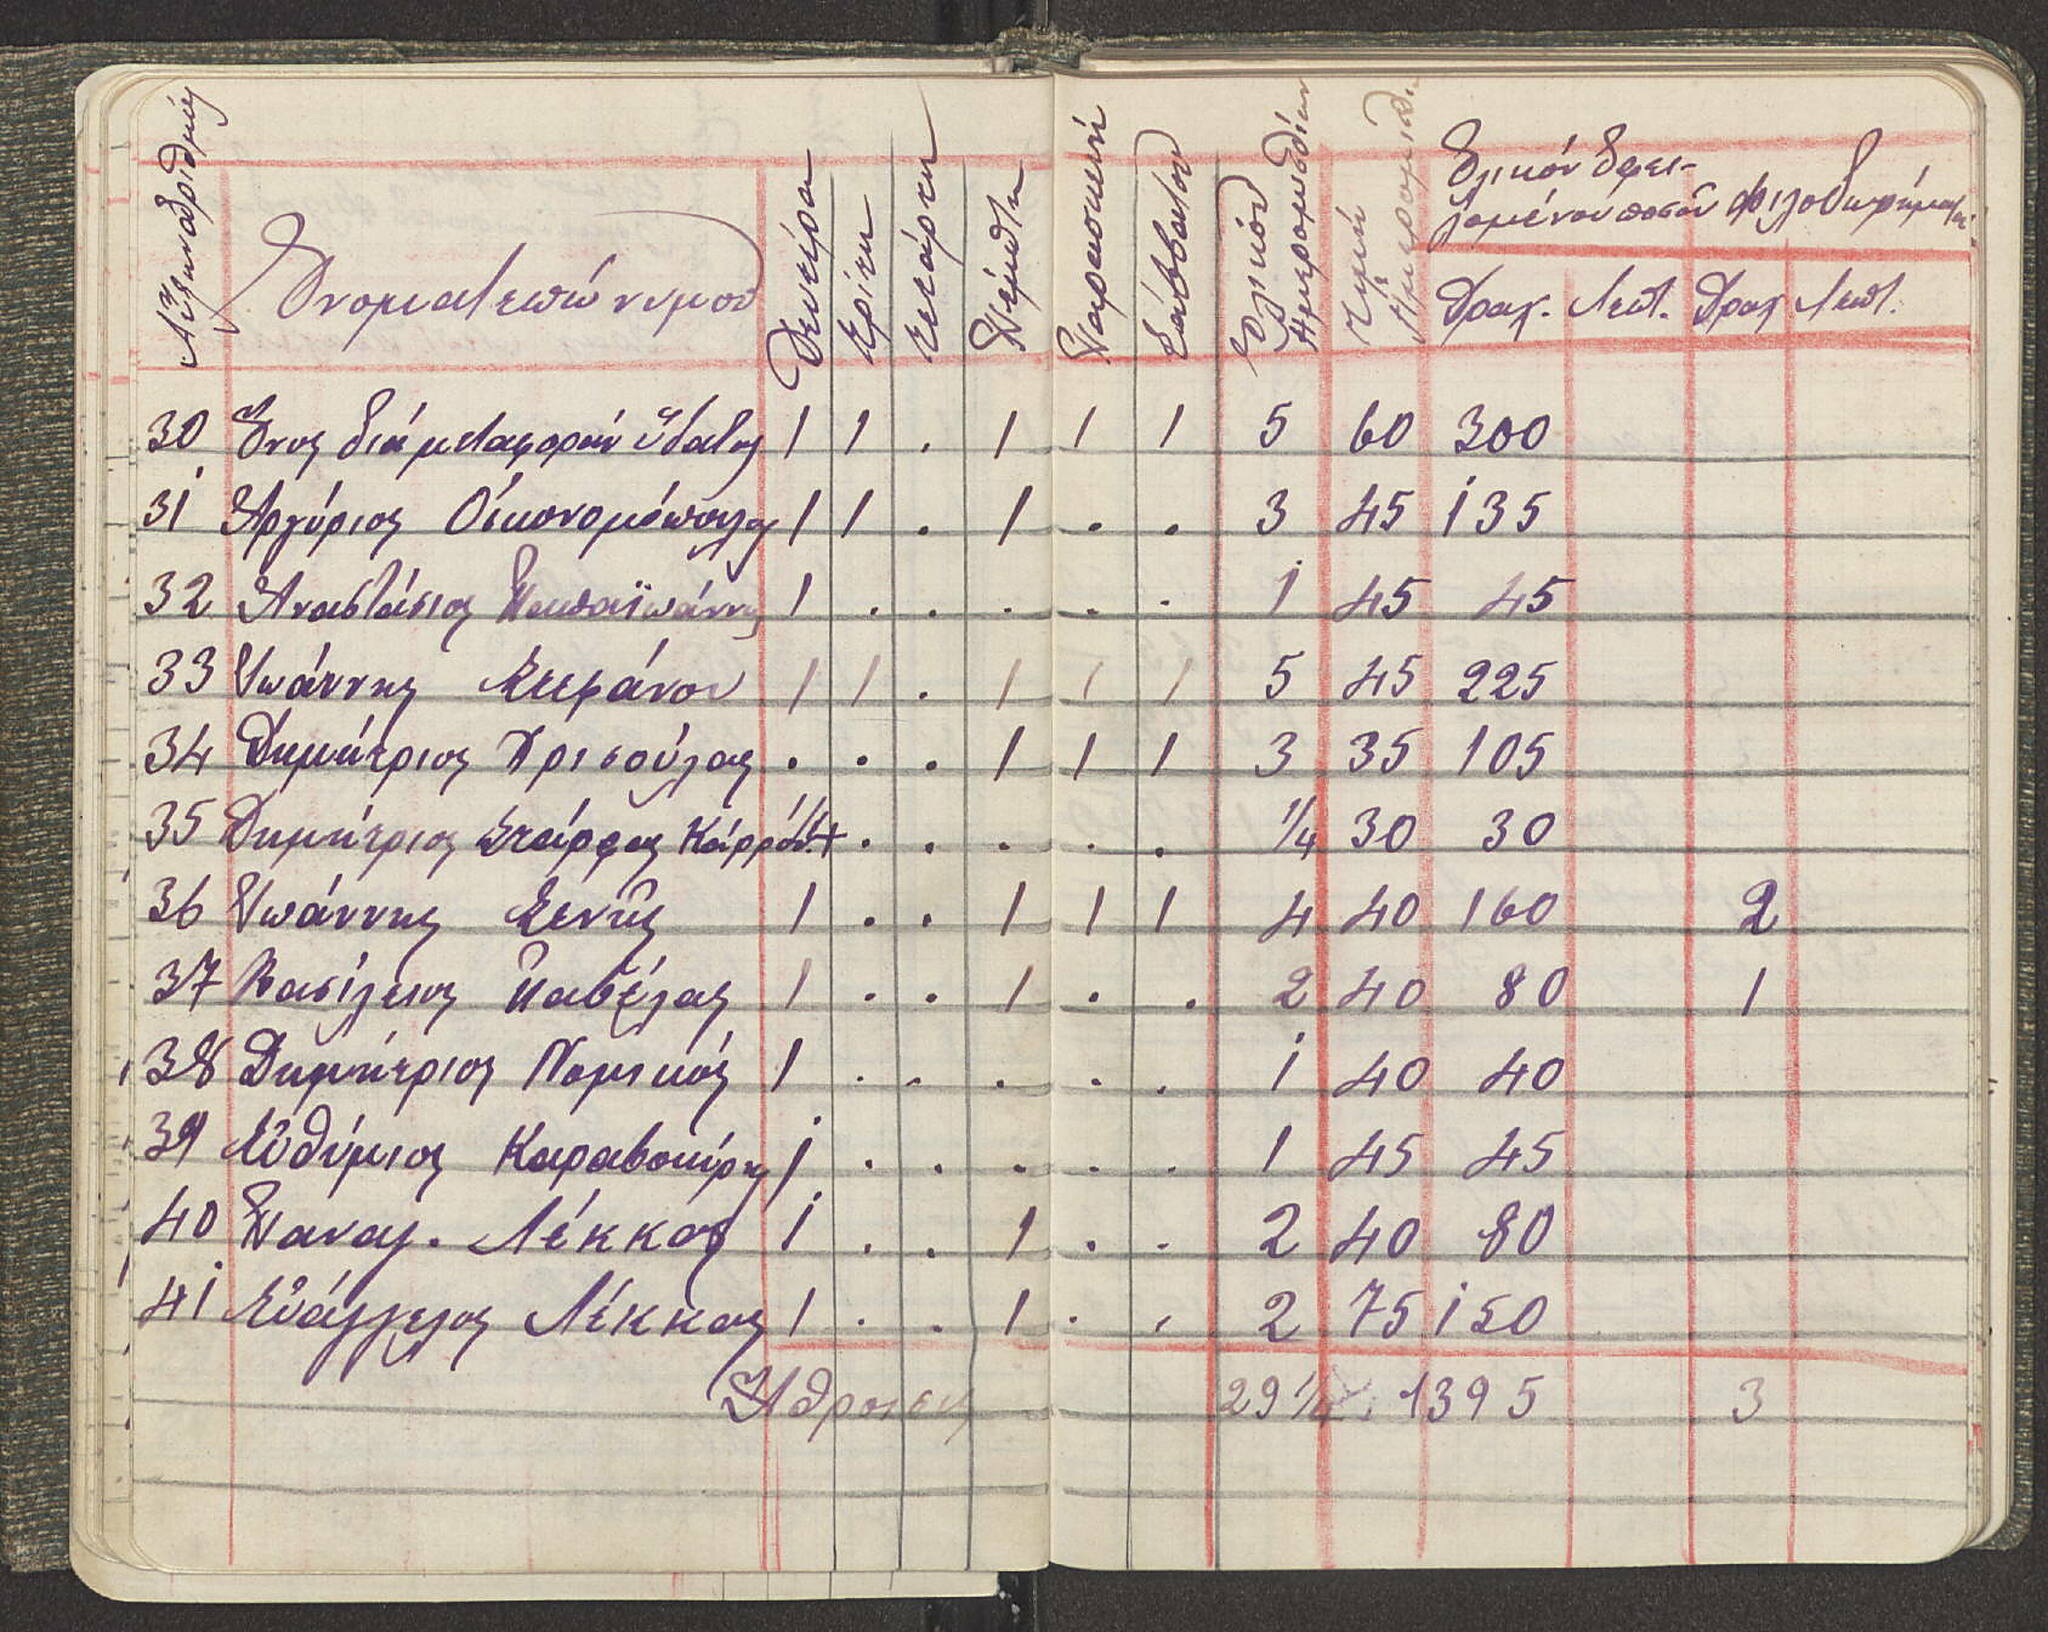 Αὔξων ἀριθμός Ὀνοματεπώνυμον Δευτέρα Τρίτη Τετάρτη Πέμπτη Παρασκευή Σάββατον Ὁλικὸν Ἡμερομισθίων Τιμὴ Ἡμερομισθίου Ὁλικὸν ὀφει-
λομένου ποσοῦ Φιλοδωρήματα
Δραχ. Λεπτ. Δραχ Λεπτ.
30 Ὄνος διὰ μεταφορὰν ὕδατος 1 1 . 1 1 1 5 60 300
31 Ἀργύριος Οἰκονομόπουλος 1 1 . 1 . . 3 45 135
32 Ἀναστάσιος Παπαϊωάννης 1 . . . . . 1 45 45
33 Ἰωάννης Στεφάνου 1 1 . 1 1 1 5 45 225
34 Δημήτριος . . . 1 1 1 3 35 105
35 Δημήτριος Κάρρον 1/4 . . . . . 1/4 30 30
36 Ἰωάννης 1 . . 1 1 1 4 40 160 2
37 Βασίλειος 1 . . 1 . . 2 40 80 1
38 Δημήτριος Νομικός 1 . . . . . 1 40 40
39 Εὐθύμιος Καραβοκύρης 1 . . . . . 1 45 45
40 Παναγ. Λέκκας 1 . . 1 . . 2 40 80
41 Εὐάγγελος Λέκκας 1 . . 1 . . 2 75 150
Ἄθροισις 29 1/4 1395 3